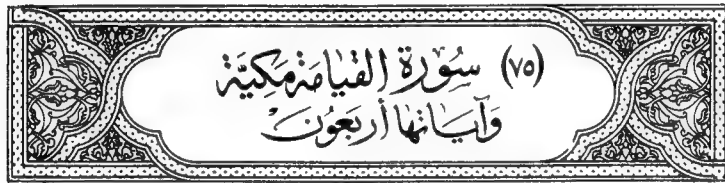 (٧٥) سُورَة القيَامَة مَكيَّة
وَآيَانهَا أربَعُونَ